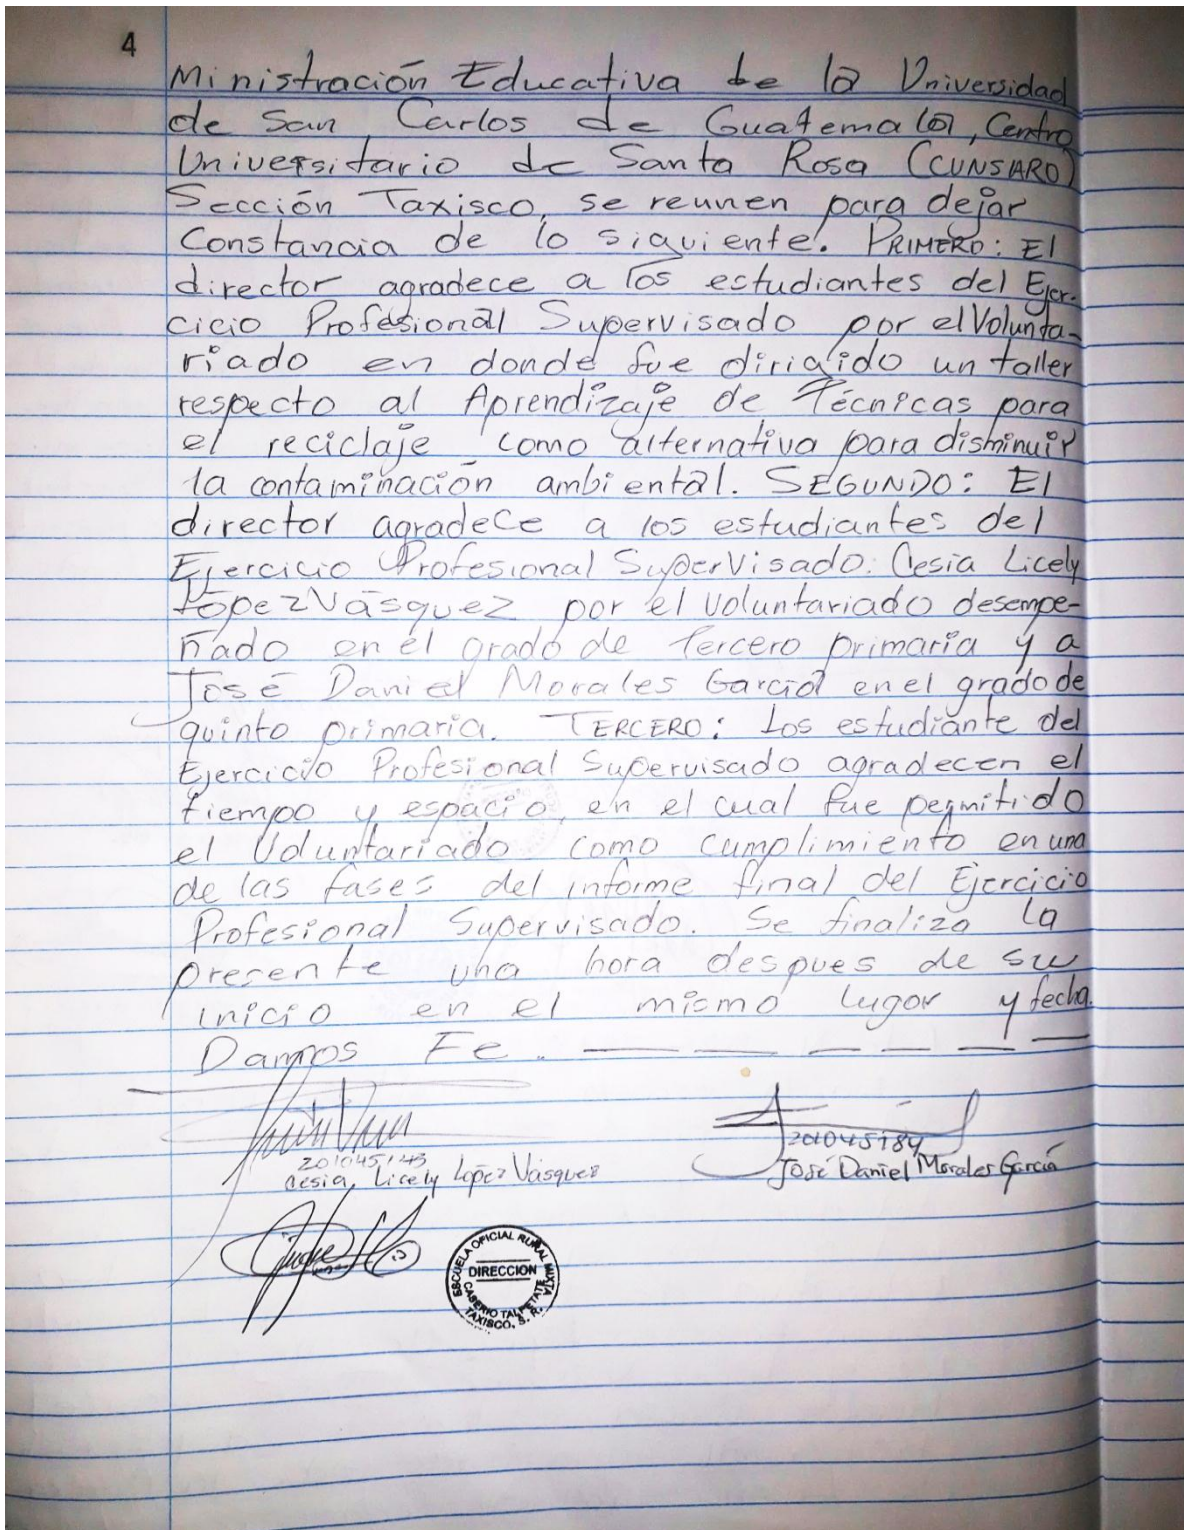 4
Ministración Educativa de la Universidad
de San Carlos de Guatemala, Centro
Universitario de Santa Rosa (CUNSARO)
Sección Taxisco, se reunen para dejar
Constancia de lo siguiente. PRIMERO: El
director agradece a los estudiantes del Ejer-
cicio Profesional Supervisado por el Volunta-
riado en donde fue dirigido un taller
respecto al Aprendizaje de Técnicas para
el reciclaje como alternativa para disminuir
la contaminación ambiental. SEGUNDO: El
director agradece a los estudiantes del
Ejercicio Profesional Supervisado: Cesia Licely
López Vásquez por el voluntariado desempe-
ñado en el grado de tercero primaria y a
José Daniel Morales García en el grado de
quinto primaria. TERCERO: Los estudiante del
Ejercicio Profesional Supervisado agradecen el
tiempo y espacio, en el cual fue permitido
el Voluntariado como cumplimiento en una
de las fases del informe final del Ejercicio
Profesional Supervisado. Se finaliza la
presente una hora despues de su
inicio en el mismo lugar y fecha.
Damos Fe.
201045143
Cesia Licely López Vásquez
201045184
José Daniel Morales García
ESCUELA OFICIAL RURAL MIXTA
DIRECCION
CASERIO TALPETATE
TAXISCO, S. R.